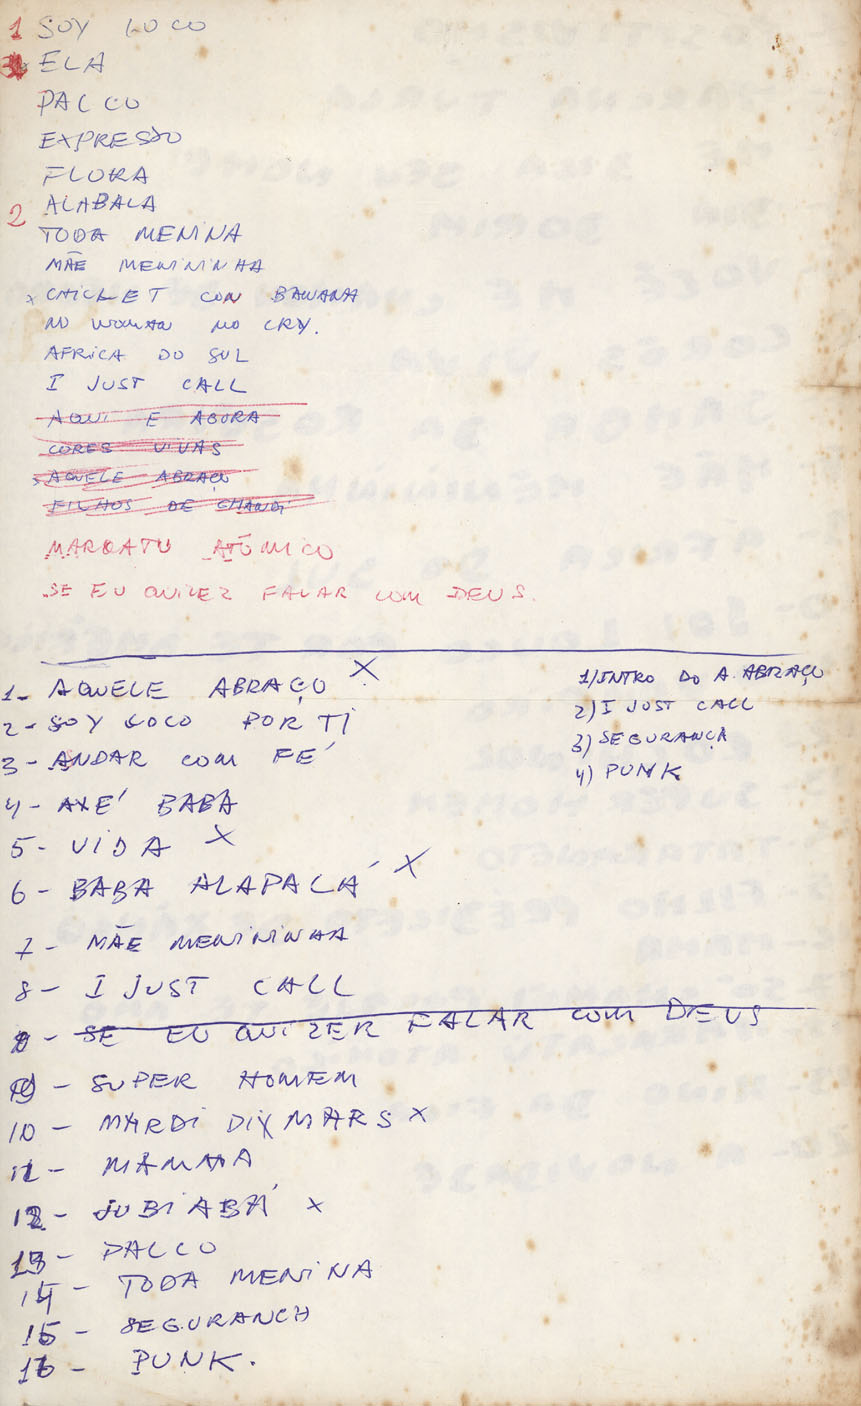 1 SOY LOCO
ELA
PALCO
EXPRESSO
FLORA
2 ALABALA
TODA MENINA
MÃE MENININHA
x CHICLET CON BANANA
NO WOMAN NO CRY.
AFRICA DO SUL
I JUST CALL
AQUI E AGORA
CORES VIVAS
AQUELE ABRAÇO
FILHOS DE GHANDI
MARACATU ATÔMICO
SE EU QUIZEZ FALAR COM DEUS.
1- AQUELE ABRAÇO X
2- SOY LOCO POR TI
3- ANDAR COM FÉ
4- AXÉ BABÁ
5- VIDA X
6- BABA ALAPALÁ X
7- MÃE MENININHA
8- I JUST CALL
9- SE EU QUIZER FALAR COM DEUS
9- SUPER HOMEM
10- MARDI DIX MARS X
11- MAMMA
12- JUBIABÁ X
13- PALCO
14- TODA MENINA
15- SEGURANÇA
16- PUNK.
1) INTRO DO A. ABRAÇO
2) I JUST CALL
3) SEGURANÇA
4) PUNK